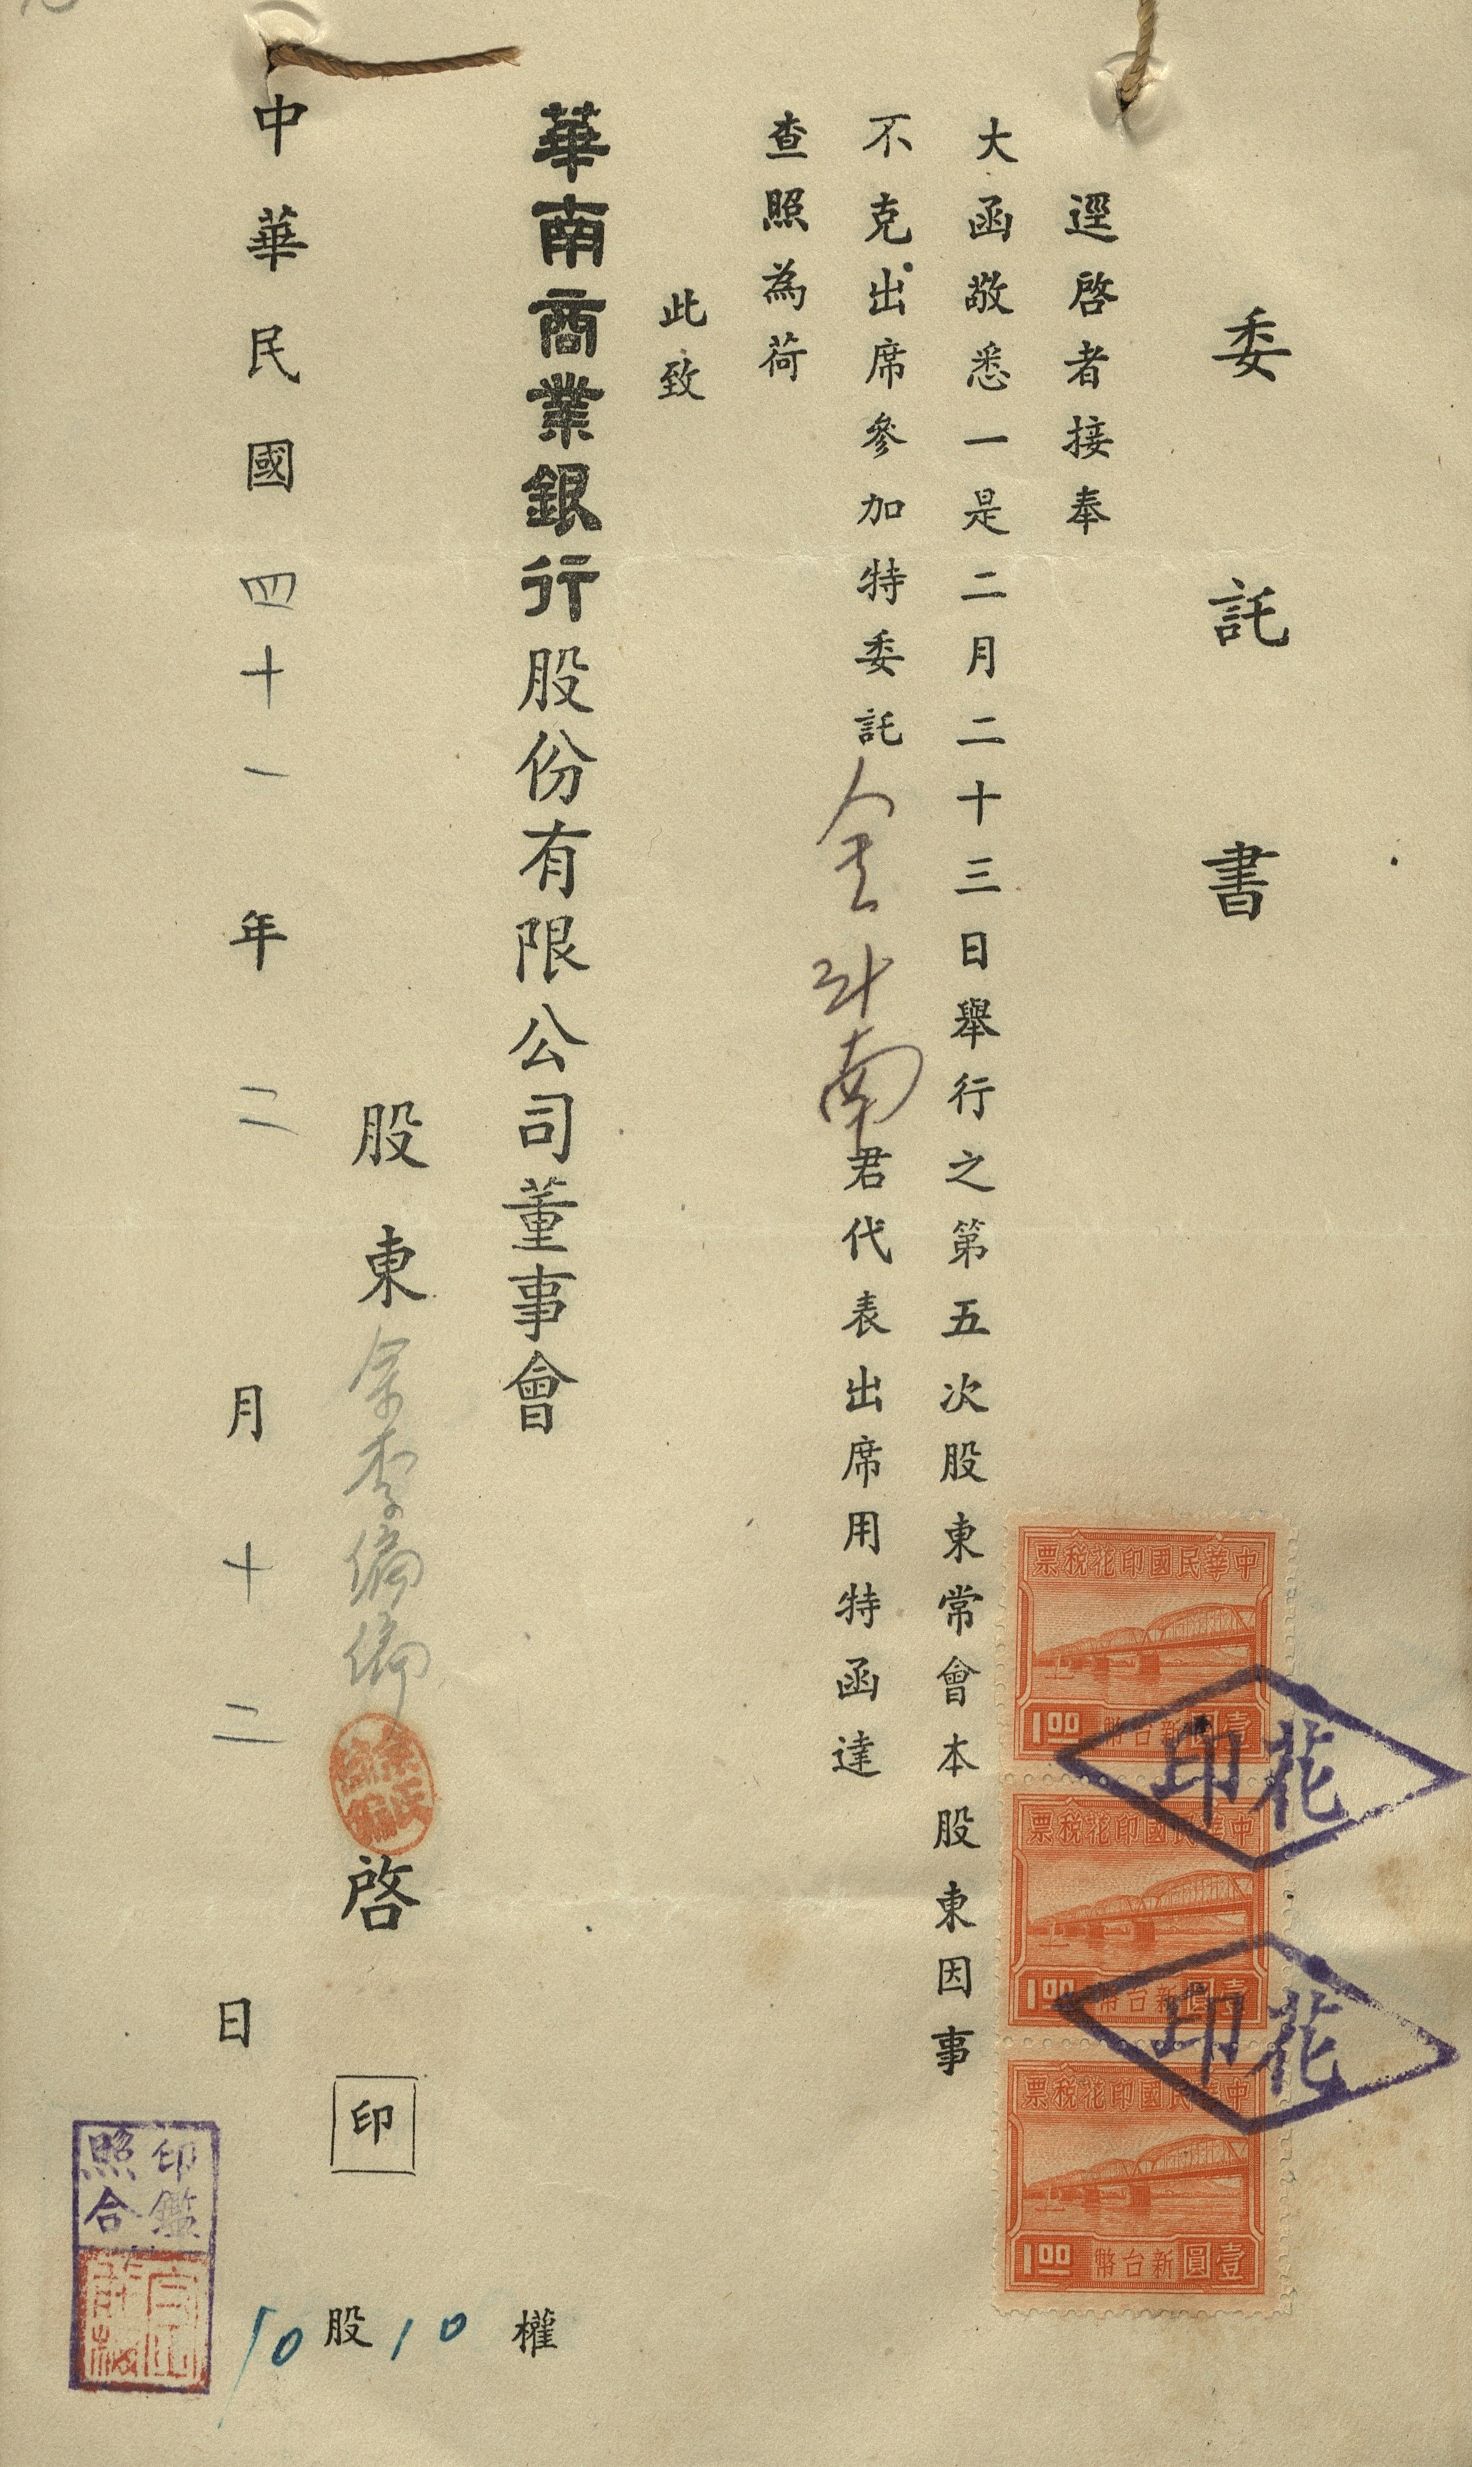 委託書
逕啓者接奉
大函敬悉一是二月二十三日舉行之第五次股東常會本股東因事
不克出席參加特委託金斗南君代表出席用特函達
查照為荷
此致
華南商業銀行股份有限公司董事會
股東余李偏 啓
印
中華民國四十一年二月十二日
10股10權
印鑑
照合
中華民國印花稅票
1.00 壹圓新台幣
花印
中華民國印花稅票
1.00 壹圓新台幣
花印
中華民國印花稅票
1.00 壹圓新台幣